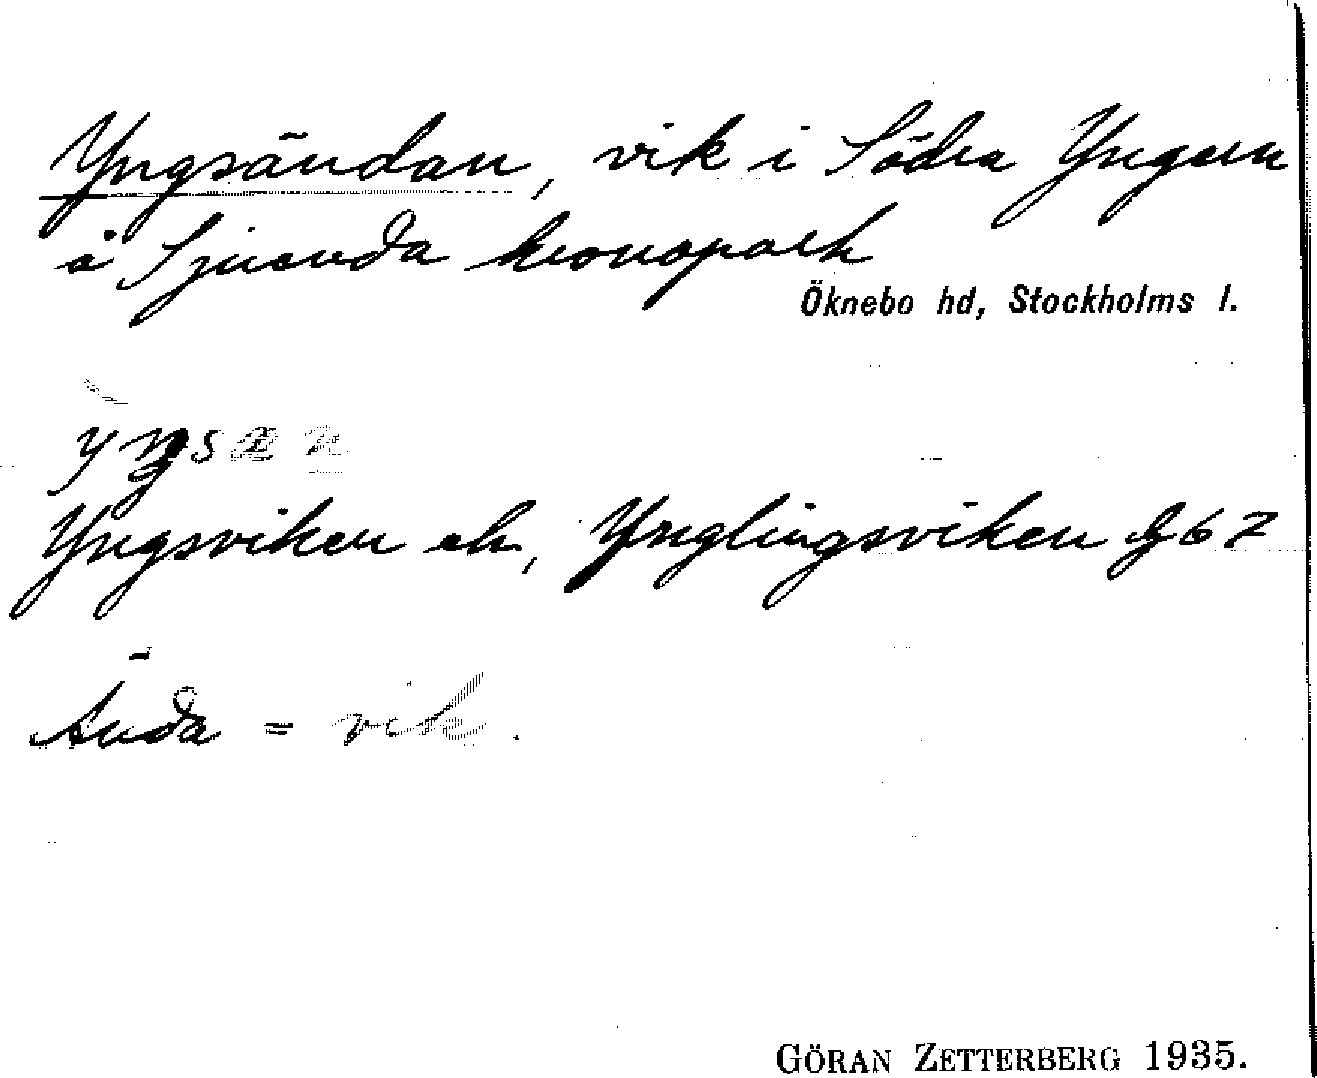 Yngsändan, vik i Södra Yngern
å Sjuenda kronopark
Öknebo hd, Stockholms l.
Yngsviken ek, Ynglingsviken
Ända = vik.
GÖRAN ZETTERBERG 1935.